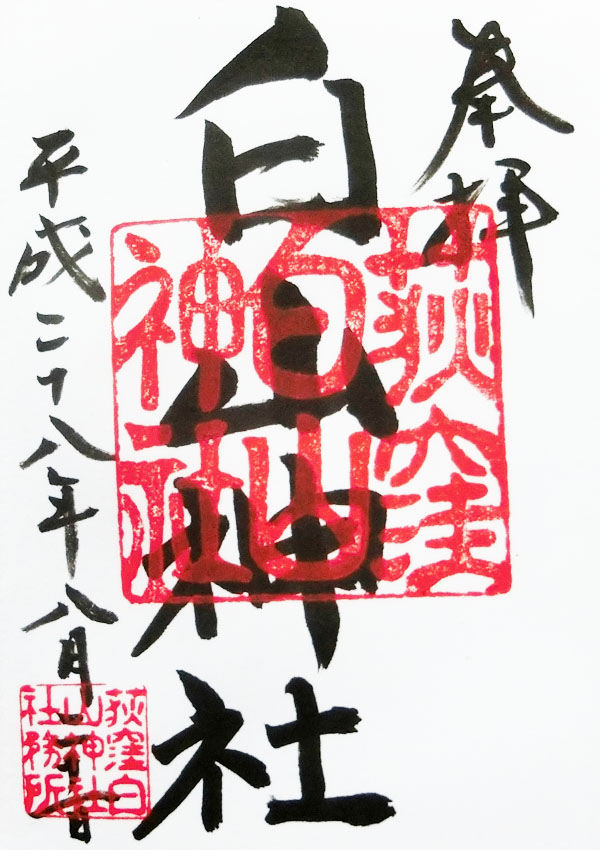 奉拝
白山神社
荻窪
白山
神社
平成二十八年八月
荻窪白
山神社
社務所